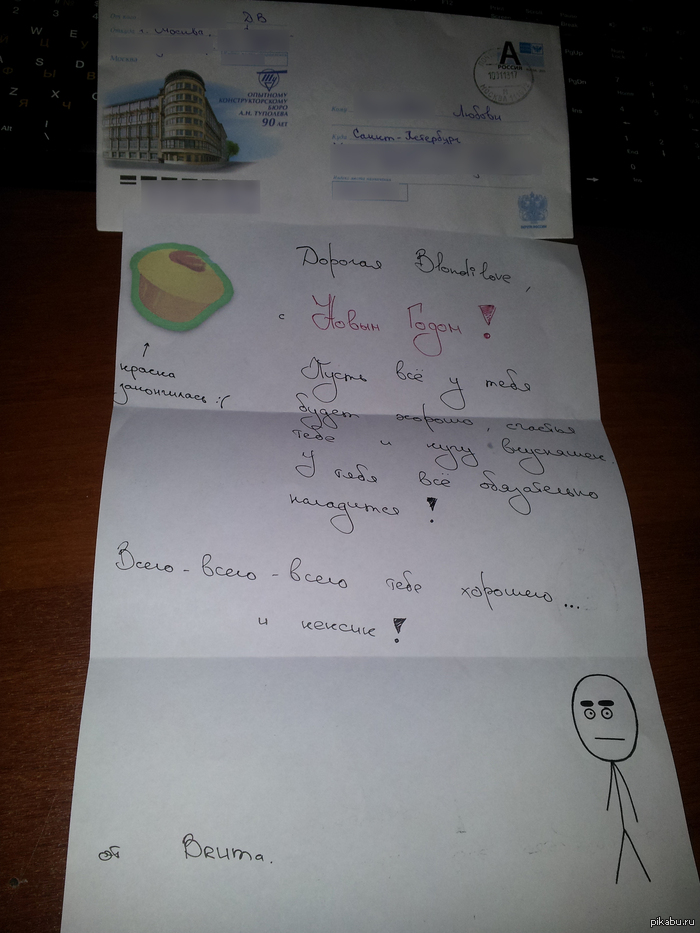 ДВ
г. Москва,
Москва
ОПЫТНОМУ
КОНСТРУКТОРСКОМУ
БЮРО
А.Н. ТУПОЛЕВА
90 ЛЕТ
А
РОССИЯ
Кому
Любови
Куда Санкт-Петербург
Дорогая Blondilove,
с Новым Годом!
↑
краска
закончилась :(
Пусть всё у тебя
будет хорошо, счастья
тебе и кучу вкусняшек.
У тебя всё обязательно
наладится!
Всего-всего-всего тебе хорошего...
и кексик!
от Вкита.
pikabu.ru